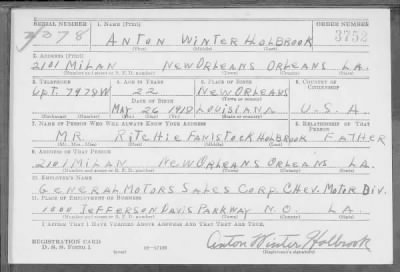 SERIAL NUMBER
1. NAME (Print)
ORDER NUMBER
ANTON WINTER HOLBROOK
3752
(First) (Middle) (Last)
2. ADDRESS (Print)
2101 MILAN NEW ORLEANS ORLEANS LA.
(Number and street or R. F. D. number) (Town) (County) (State)
3. TELEPHONE
4. AGE IN YEARS
5. PLACE OF BIRTH
6. COUNTRY OF CITIZENSHIP
UPT. 7978W
22
NEW ORLEANS
DATE OF BIRTH
(Town or county)
MAY 26 1918
LOUISIANA
U.S.A.
(Exchange) (Number)
(Mo.) (Day) (Yr.)
(State or country)
7. NAME OF PERSON WHO WILL ALWAYS KNOW YOUR ADDRESS
8. RELATIONSHIP OF THAT PERSON
MR RITCHIE FANISTOCK HOLBROOK FATHER
(Mr., Mrs., Miss) (First) (Middle) (Last)
9. ADDRESS OF THAT PERSON
2101 MILAN NEW ORLEANS ORLEANS LA.
(Number and street or R. F. D. number) (Town) (County) (State)
10. EMPLOYER'S NAME
GENERAL MOTORS SALES CORP. CHEV. MOTOR DIV.
11. PLACE OF EMPLOYMENT OR BUSINESS
1000 JEFFERSON DAVIS PARKWAY N.O. LA.
(Number and street or R. F. D. number) (Town) (County) (State)
I AFFIRM THAT I HAVE VERIFIED ABOVE ANSWERS AND THAT THEY ARE TRUE.
REGISTRATION CARD
D. S. S. Form 1
Anton Winter Holbrook
(Registrant's signature)